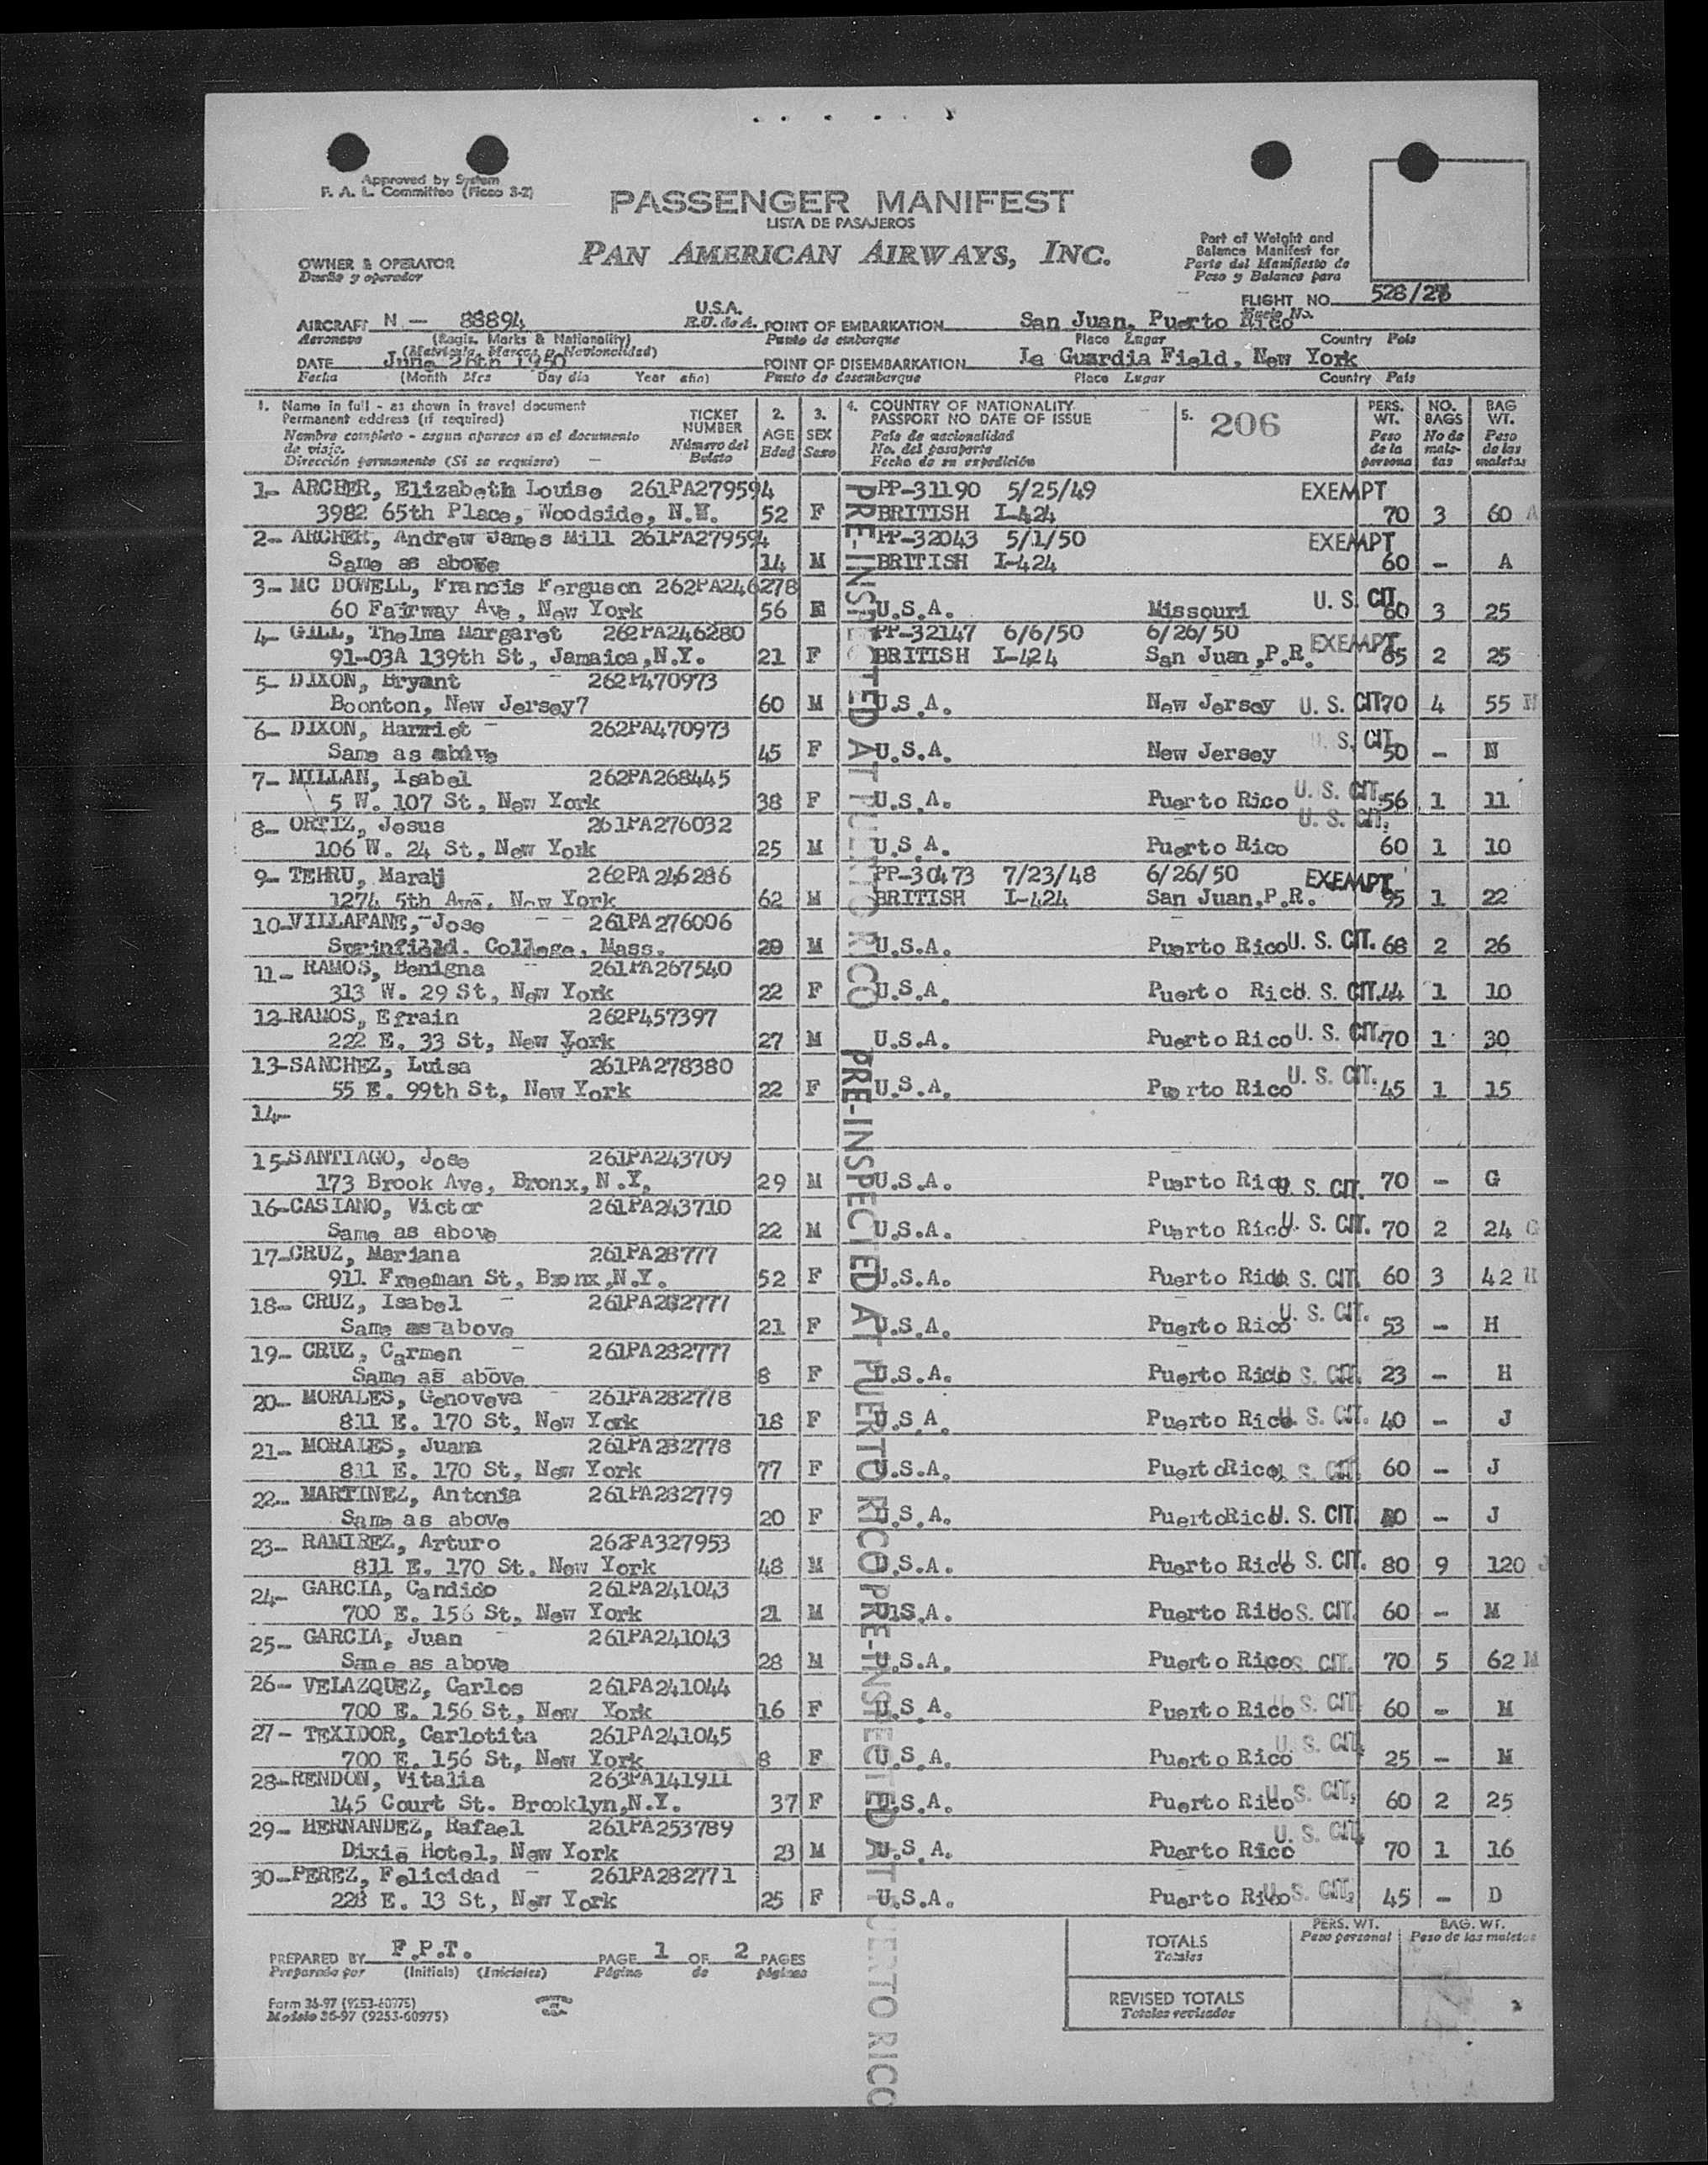 Approved by System
F. A. L. Committee (Ficco 3-2)
PASSENGER MANIFEST
LISTA DE PASAJEROS
PAN AMERICAN AIRWAYS, INC.
Part of Weight and
Balance Manifest for
Parte del Manifiesto de
Peso y Balance para
OWNER & OPERATOR
Dueño y operador
FLIGHT NO. 528/
Vuelo No.
AIRCRAFT N - 88894 U.S.A. POINT OF EMBARKATION San Juan, Puerto Rico
Aeronave (Regis. Marks & Nationality) E.U. de A. Punto de embarque Place Lugar Country País
(Matrícula, Marcas y Nacionalidad)
DATE June 26th 1950 POINT OF DISEMBARKATION La Guardia Field, New York
Fecha (Month Mes Day día Year año) Punto de desembarque Place Lugar Country País
1. Name in full - as shown in travel document
Permanent address (if required)
Nombre completo - segun aparece en el documento
de viaje.
Dirección permanente (Si se requiere)
TICKET
NUMBER
Número del
Boleto
2.
AGE
Edad
3.
SEX
Sexo
4. COUNTRY OF NATIONALITY
PASSPORT NO DATE OF ISSUE
País de nacionalidad
No. del pasaporte
Fecha de su expedición
5. 206
PERS.
WT.
Peso
de la
persona
NO.
BAGS
No de
male-
tas
BAG
WT.
Peso
de las
maletas
1- ARCHER, Elizabeth Louise 261PA279594 PP-31190 5/25/49 EXEMPT
3982 65th Place, Woodside, N.Y. 52 F BRITISH I-424 70 3 60 A
2- ARCHER, Andrew James Mill 261PA279594 PP-32043 5/1/50 EXEMPT
Same as above 14 M BRITISH I-424 60 - A
3- MC DOWELL, Francis Ferguson 262PA246278
60 Fairway Ave, New York 56 U.S.A. Missouri U. S. CIT. 60 3 25
4- GILL, Thelma Margaret 262PA246280 PP-32147 6/6/50 6/26/50 EXEMPT
91-03A 139th St, Jamaica,N.Y. 21 F BRITISH I-424 San Juan,P.R. 65 2 25
5- DIXON, Bryant 262P470973
Boonton, New Jersey7 60 M U.S.A. New Jersey U. S. CIT 70 4 55 N
6- DIXON, Harriet - 262PA470973
Same as abive 45 F U.S.A. New Jersey U. S. CIT. 50 - N
7- MILLAN, Isabel 262PA268445
5 W. 107 St, New York 38 F U.S.A. Puerto Rico U. S. CIT. 56 1 11
8- ORTIZ, Jesus 261PA276032 U. S. CIT.
106 W. 24 St, New York 25 M U.S.A. Puerto Rico 60 1 10
9- TEHRU, Maralj 262PA246286 PP-30473 7/23/48 6/26/50 EXEMPT
1274 5th Ave, New York 62 M BRITISH I-424 San Juan,P.R. 1 22
10-VILLAFANE, Jose 261PA276006
College, Mass. M U.S.A. Puerto Rico U. S. CIT. 68 2 26
11- RAMOS, Benigna 261PA267540
313 W. 29 St, New York 22 F U.S.A. Puerto Rico U. S. CIT. 44 1 10
12-RAMOS, Efrain 262P457397
222 E. 33 St, New York 27 M U.S.A. Puerto Rico U. S. CIT. 70 1 30
13-SANCHEZ, Luisa 261PA278380
55 E. 99th St, New York 22 F U.S.A. Puerto Rico U. S. CIT. 45 1 15
14-
15-SANTIAGO, Jose 261PA243709
173 Brook Ave, Bronx, N.Y. 29 M U.S.A. Puerto Rico U. S. CIT. 70 - G
16-CASIANO, Victor 261PA243710
Same as above 22 M U.S.A. Puerto Rico U. S. CIT. 70 2 24 G
17-CRUZ, Mariana 261PA28777
911 Freeman St, Bronx,N.Y. 52 F U.S.A. Puerto Rico U. S. CIT. 60 3 42 H
18- CRUZ, Isabel - 261PA282777
Same as above 21 F U.S.A. Puerto Rico U. S. CIT. 53 - H
19- CRUZ, Carmen - 261PA282777
Same as above 8 F U.S.A. Puerto Rico U. S. CIT. 23 - H
20- MORALES, Genoveva - 261PA282778
811 E. 170 St, New York 18 F U.S.A. Puerto Rico U. S. CIT. 40 - J
21- MORALES, Juana 261PA282778
811 E. 170 St, New York 77 F U.S.A. PuertoRico U. S. CIT. 60 - J
22- MARTINEZ, Antonia 261PA282779
Same as above 20 F U.S.A. PuertoRico U. S. CIT. - J
23- RAMIREZ, Arturo 262PA327953
811 E. 170 St. New York 48 M U.S.A. Puerto Rico U. S. CIT. 80 9 120 J
24- GARCIA, Candido 261PA241043
700 E. 156 St, New York 21 M U.S.A. Puerto Rico U. S. CIT. 60 - M
25- GARCIA, Juan 261PA241043
Same as above 28 M U.S.A. Puerto Rico U. S. CIT. 70 5 62 M
26- VELAZQUEZ, Carlos 261PA241044
700 E. 156 St, New York 16 F U.S.A. Puerto Rico U. S. CIT 60 - M
27- TEXIDOR, Carlotita 261PA241045
700 E. 156 St, New York 8 F U.S.A. Puerto Rico U. S. CIT. 25 - M
28-RENDON, Vitalia 263PA141911
145 Court St. Brooklyn,N.Y. 37 F U.S.A. Puerto Rico U. S. CIT. 60 2 25
29- HERNANDEZ, Rafael 261PA253789
Dixie Hotel, New York 23 M U.S.A. Puerto Rico U. S. CIT. 70 1 16
30-PEREZ, Felicidad - 261PA282771
228 E. 13 St, New York 25 F U.S.A. Puerto Rico U. S. CIT. 45 - D
PRE-INSPECTED AT PUERTO RICO
PRE-INSPECTED AT PUERTO RICO
PRE-INSPECTED AT PUERTO RICO
PREPARED BY F.P.T. PAGE 1 OF 2 PAGES
Preparado por (Initials) (Iniciales) Página de páginas
Form 36-97 (9253-60975)
Modelo 36-97 (9253-60975)
PERS. WT.
Peso personal
BAG. WT.
Peso de las maletas
TOTALS
Totales
REVISED TOTALS
Totales revisados